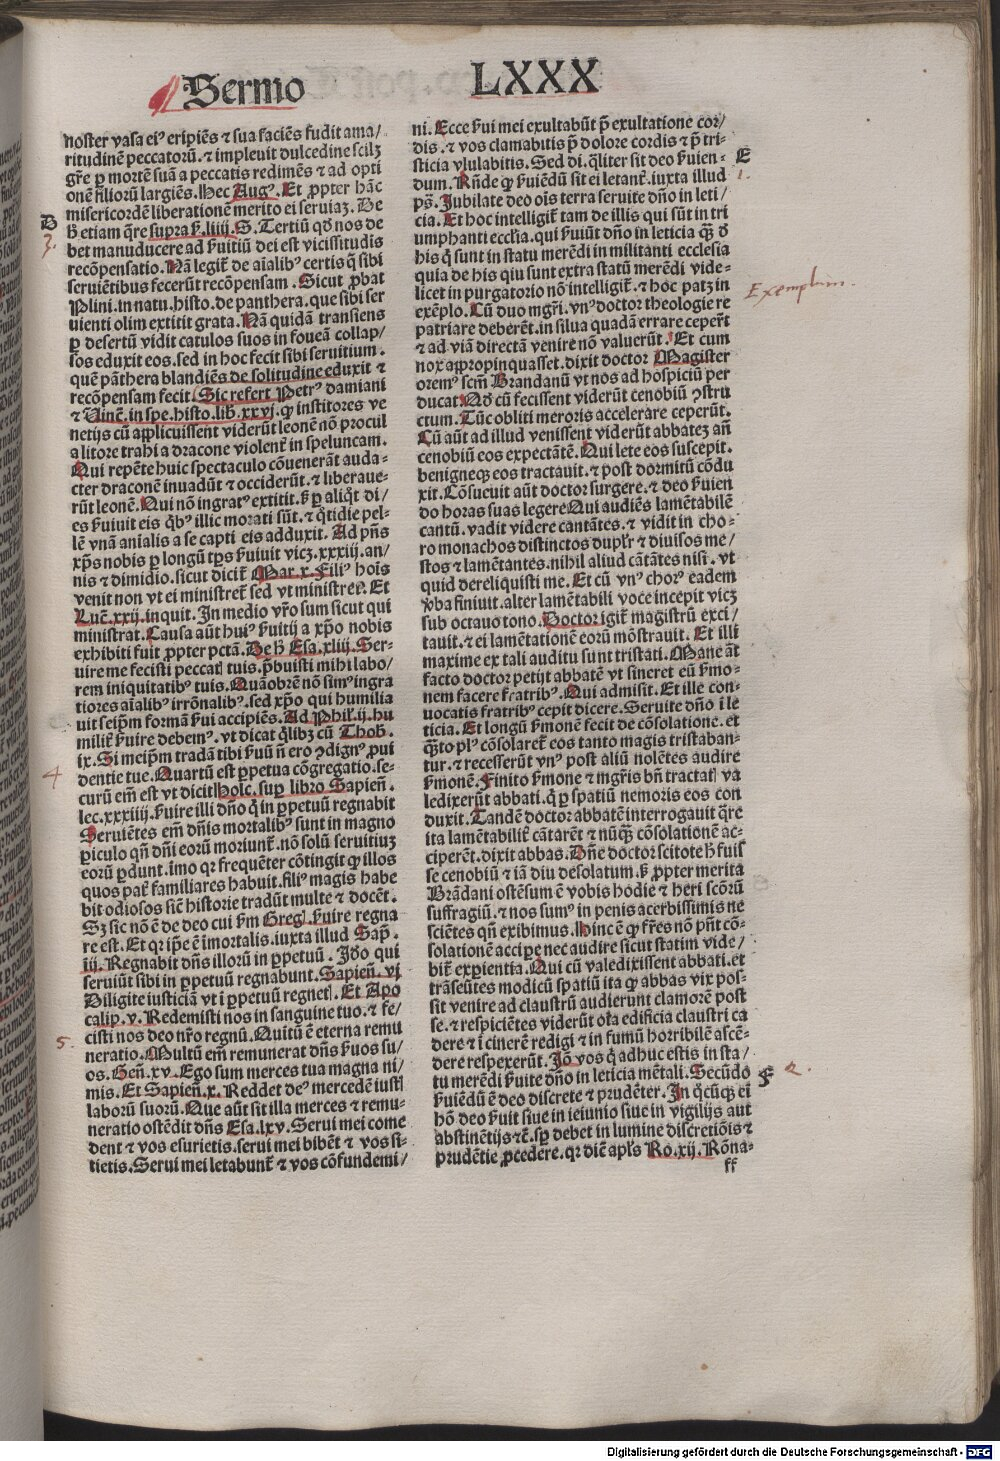 Sermo LXXX
noster vasa eiꝰ eripiẽs ⁊ sua faciẽs fudit ama/
ritudinẽ peccatorũ. ⁊ impleuit dulcedine scilꝫ
gr̃e ꝑ mortẽ suã a peccatis redimẽs ⁊ ad opti
onẽ filiorũ largiẽs. Hec Augꝰ. Et ꝓpter hãc
misericordẽ liberationẽ merito ei seruiaꝫ. De
h̃ etiam q̃re supra ẜ. liiij. S. Tertiũ qđ nos de
bet manuducere ad ẜuitiũ dei est vicissitudĩs
recõpensatio. Nã legit̃ de aĩalibꝰ certis q̃ sibi
seruiẽtibus fecerũt recõpensam. Sicut ꝓbat
Plini. in natu. histo. de panthera. que sibi ser
uienti olim extitit grata. Nã quidã transiens
ꝑ desertũ vidit catulos suos in foueã collap/
sos eduxit eos. sed in hoc fecit sibi seruitium.
quẽ pãthera blandiẽs de solitudine eduxit ⁊
recõpensam fecit. Sic refert Petrꝰ damiani
⁊ Vincẽ. in spe. histo. lib̃. xxvj. ꝙ institores ve
netijs cũ applicuissent viderũt leonẽ nõ procul
a litore trahi a dracone violent̃ in speluncam.
Qui repẽte huic spectaculo cõuenerãt auda-
cter draconẽ inuadũt ⁊ occiderũt. ⁊ liberaue-
rũt leonẽ. Qui nõ ingratꝰ extitit. ẜ ꝑ aliq̃t di/
es ẜuiuit eis q̃bꝰ illic morati sũt. ⁊ q̃tidie pel-
lẽ vnã anialis a se capti eis adduxit. Ad pñs
xp̃s nobis ꝑ longũ tp̃s ẜuiuit vicꝫ. xxxiij. an/
nis ⁊ dimidio. sicut dicit̃ Mar. x. Filiꝰ hoĩs
venit non vt ei ministret̃ sed vt ministret. Et
Luc̃. xxij. inquit. In medio vr̃o sum sicut qui
ministrat. Causa aũt huiꝰ ẜuitij a xp̃o nobis
exhibiti fuit ꝓpter pctã. De h̃ Esa. xliij. Ser-
uire me fecisti peccatis tuis. p̃buisti mihi labo/
rem iniquitatibꝰ tuis. Quãobrẽ nõ simꝰ ingra
tiores aĩalibꝰ irrõnalibꝰ. sed xp̃o qui humilia
uit seip̃m formã ẜui accipiẽs. Ad Phil̃. ij. hu
milit̃ ẜuire debemꝰ. vt dicat q̃libꝫ cũ Thob̃.
ix. Si meip̃m tradã tibi ẜuũ ñ ero ↄdignꝰ ꝓui
dentie tue. Quartũ est ꝑpetua cõgregatio. se-
curũ em̃ est vt dicit Holc. suꝑ libro Sapieñ.
lec. xxxiiij. ẜuire illi dñọ q̃ in ꝑpetuũ regnabit
Seruiẽtes em̃ dñis mortalibꝰ sunt in magno
ꝑiculo qñ dñi eorũ moriunt̃. nõ solũ seruitiuꝫ
eorũ ꝑdunt. imo qꝛ frequẽter cõtingit ꝙ illos
quos pat̃ familiares habuit. filiꝰ magis habe
bit odiosos sic̃ historie tradũt multe ⁊ docẽt.
Sꝫ sic nõ ẽ de deo cui ẜm Greg. ẜuire regna
re est. Et qꝛ ip̃e ẽ ĩmortalis. iuxta illud Sap̃.
iij. Regnabit dñs illorũ in ꝑpetuũ. Jdo qui
seruiũt sibi in ꝑpetuũ regnabunt. Sapieñ. vj
Diligite iusticiã vt ĩ ꝑpetuũ regnetis. Et Apo
calip̃. v. Redemisti nos in sanguine tuo. ⁊ fe/
cisti nos deo nr̃o regnũ. Quĩtũ ẽ eterna remu
neratio. Multũ em̃ remunerat dñs ẜuos su/
os. Geñ. xv. Ego sum merces tua magna ni/
mis. Et Sapieñ. x. Reddet deꝰ mercedẽ iustis
laborũ suorũ. Que aũt sit illa merces ⁊ remu-
neratio ostẽdit dñs Esa. lxv. Serui mei come
dent ⁊ vos esurietis. serui mei bibẽt ⁊ vos si-
tietis. Serui mei letabunt̃ ⁊ vos cõfundemi/
D
3.
4
5.
ni. Ecce ẜui mei exultabũt p̃ exultatione cor/
dis. ⁊ vos clamabitis p̃ dolore cordis ⁊ p̃ tri-
sticia vlulabitis. Sed di. q̃liter sit deo ẜuien-
dum. Rñde ꝙ ẜuiẽdũ sit ei letant̃. iuxta illud
ps̃. Jubilate deo oĩs terra seruite dño in leti/
cia. Et hoc intelligit̃ tam de illis qui sũt in tri
umphanti eccl̃ia. qui ẜuiũt dño in leticia q̃ đ
his q̃ sunt in statu merẽdi in militanti ecclesia
quia de his qui sunt extra statũ merẽdi vide-
licet in purgatorio nõ intelligit̃. ⁊ hoc patꝫ in
exẽplo. Cũ duo mgr̃i. vnꝰ doctor theologie re
patriare deberẽt. in silua quadã errare ceper̃t
⁊ ad viã directã venire nõ valuerũt. Et cum
nox appropinquasset. dixit doctor Magister
oremꝰ scm̃ Brandanũ vt nos ad hospiciũ per
ducat. Qđ cũ fecissent viderũt cenobiũ ↄstru
ctum. Tũc obliti meroris accelerare ceperũt.
Cũ aũt ad illud venissent viderũt abbateꝫ añ
cenobiũ eos expectãtẽ. Qui lete eos suscepit.
benigneqꝫ eos tractauit. ⁊ post dormitũ cõdu
xit. Cõsueuit aũt doctor surgere. ⁊ deo ẜuien
do horas suas legere Qui audiẽs lamẽtabilẽ
cantũ. vadit videre cantãtes. ⁊ vidit in cho-
ro monachos distinctos dupl̃r ⁊ diuisos me/
stos ⁊ lamẽtantes. nihil aliud cãtãtes nisi. vt
quid dereliquisti me. Et cũ vnꝰ chorꝰ eadem
v̾ba finiuit. alter lamẽtabili voce incepit vicꝫ
sub octauo tono. Doctor igit̃ magistrũ exci/
tauit. ⁊ ei lamẽtationẽ eorũ mõstrauit. Et illi
maxime ex tali auditu sunt tristati. Mane aũt
facto doctor petijt abbatẽ vt sineret eũ ẜmo-
nem facere fratribꝰ. Qui admisit. Et ille con-
uocatis fratribꝰ cepit dicere. Seruite dño ĩ le
ticia. Et longũ ẜmonẽ fecit de cõsolatione. et
q̃ꝫto plꝰ cõsolaret̃ eos tanto magis tristaban-
tur. ⁊ recesserũt vnꝰ post aliũ nolẽtes audire
ẜmonẽ. Finito ẜmone ⁊ mgr̃is bñ tractatis va
ledixerũt abbati. q̃ ꝑ spatiũ nemoris eos con
duxit. Tandẽ doctor abbatẽ interrogauit q̃re
ita lamẽtabilit̃ cãtarẽt ⁊ nũq̃ꝫ cõsolationẽ ac-
ciperẽt. dixit abbas. Dñe doctor scitote h̃ fuis
se cenobiũ ⁊ iã diu desolatum. ẜ ꝓpter merita
Brãdani ostẽsum ẽ vobis hodie ⁊ heri scõrũ
suffragiũ. ⁊ nos sumꝰ in penis acerbissimis ne
sciẽtes qñ exibimus. Hinc ẽ ꝙ fr̃es nõ pñt cõ-
solationẽ accipe nec audire sicut statim vide/
bit̃ exꝑientia. Qui cũ valedixissent abbati. et
trãseũtes modicũ spatiũ ita ꝙ abbas vix pos-
sit venire ad claustrũ audierunt clamorẽ post
se. ⁊ respiciẽtes viderũt oĩa edificia claustri ca
dere ⁊ ĩ cinerẽ redigi ⁊ in fumũ horribilẽ ascẽ-
dere respexerũt. Jõ vos q̃ adhuc estis in sta/
tu merẽdi ẜuite dño in leticia mẽtali. Secũdo
ẜuiẽdũ ẽ deo discrete ⁊ prudẽter. In q̃cũqꝫ ei
hõ deo ẜuit siue in ieiunio siue in vigilijs aut
abstinẽtijs ⁊c̃. sꝑ debet in lumine discretiõis ⁊
prudẽtie ꝓcedere. qꝛ dic̃ apl̃s Ro. xij. Rõna-
ff
E
1.
Exemplum.
F 2.
Digitalisierung gefördert durch die Deutsche Forschungsgemeinschaft - DFG